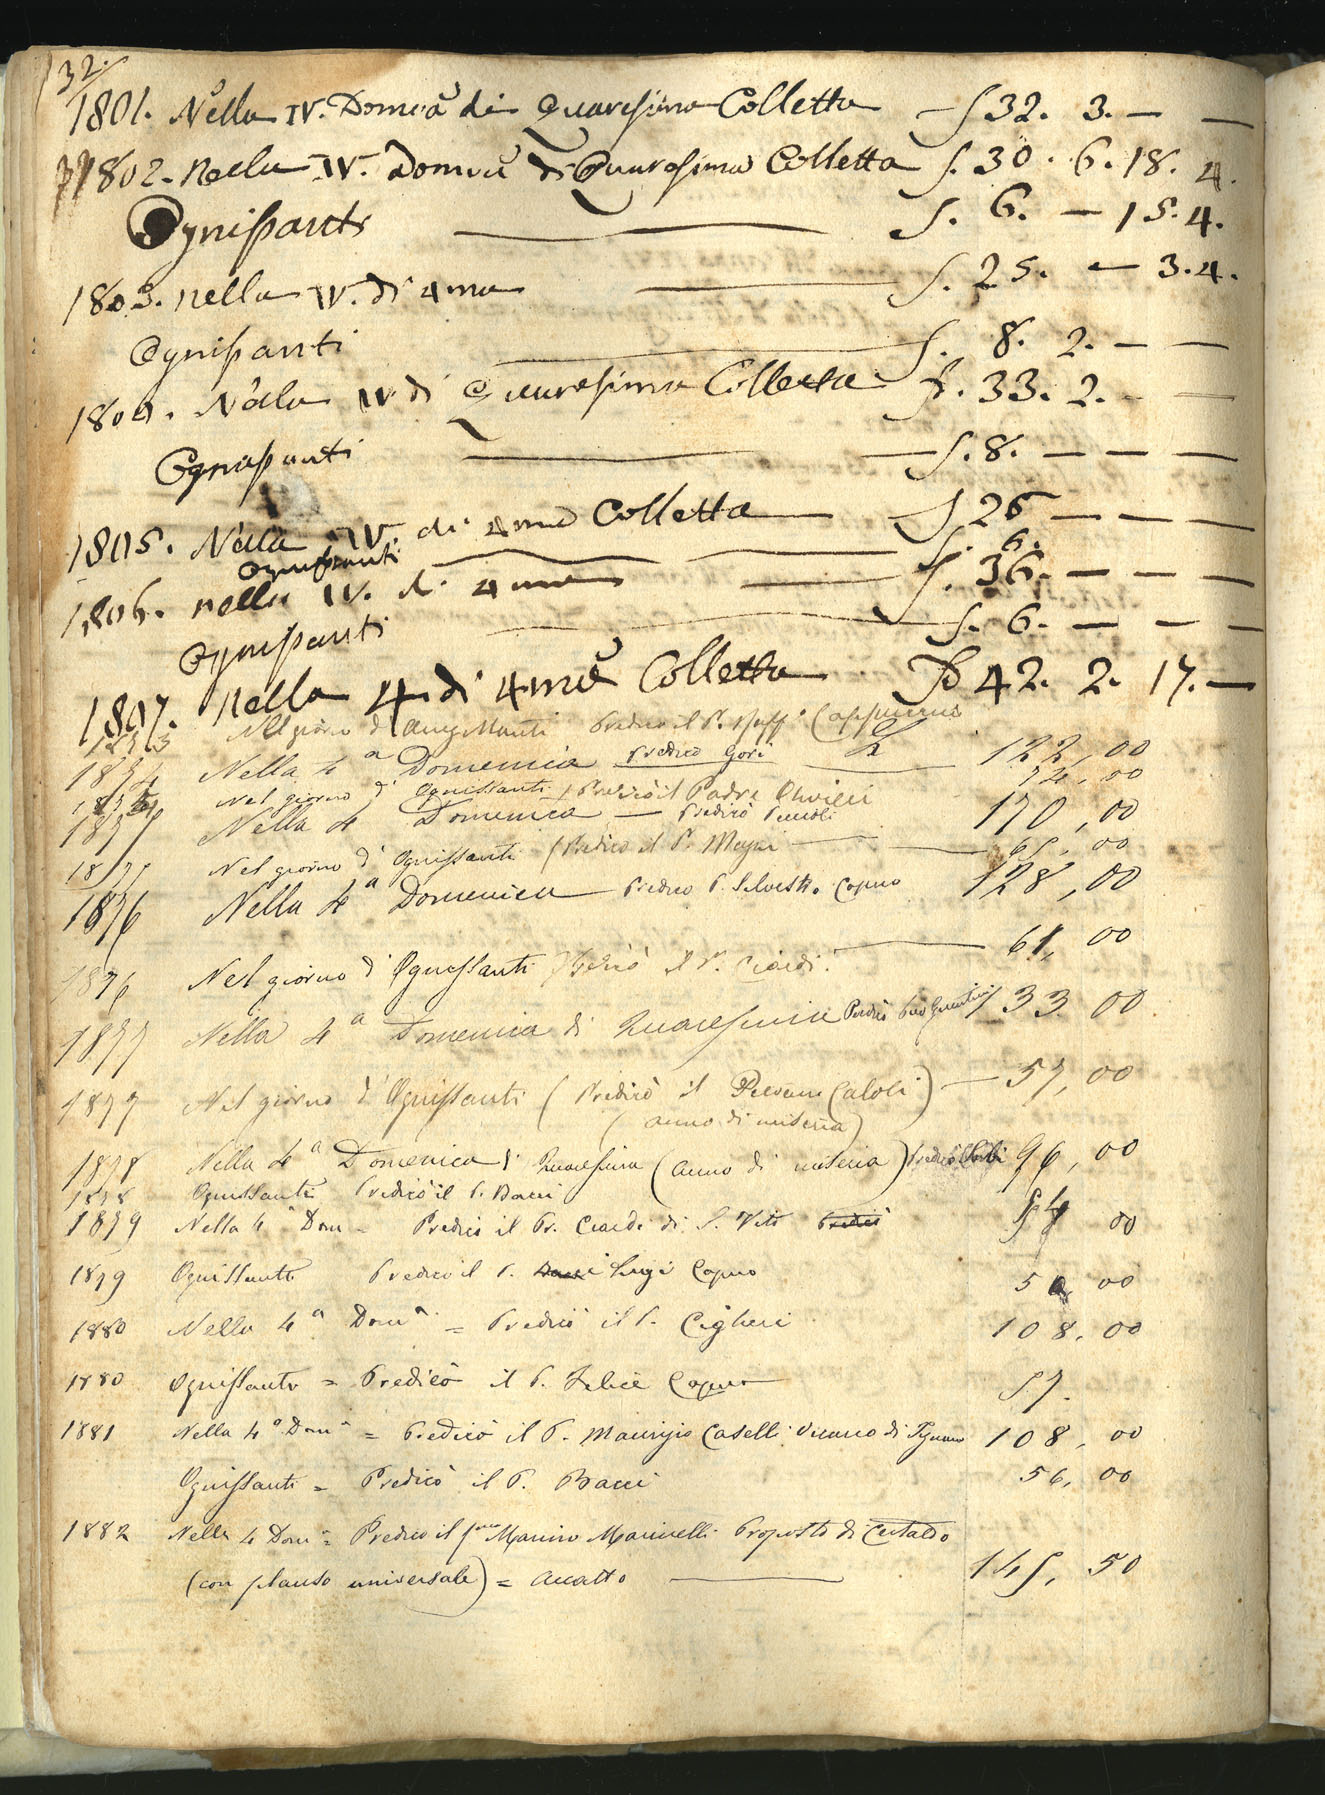 32.
1801. Nella IV. Domca di Quaresima Colletta — S 32. 3. — —
1802. Nella IV. Domca di Quaresima Colletta S. 30. 6. 18. 4.
Ognissanti — S. 6. — 15. 4.
1803. nella IV. di 4ma — S. 25. — 3. 4.
Ognissanti — S. 8. 2. — —
1804. Nela IV di Quaresima Colletta S. 33. 2. — —
Ognissanti — S. 8. — — —
1805. Nela IV. di 4ma Colletta — S 26 — — —
Ognissanti — S. 6.
1806. nella IV. di 4ma — S. 36. — — —
Ognissanti — S. 6. — — —
1807. Nella 4. di 4ma Colletta S 42. 2. 17. —
Nel giorno d' Ognissanti Predicò il P. Cappuccino
1874 Nella 4a Domenica Predicò Gori — 122, 00
Nel giorno d' Ognissanti Predicò il Padre 74, 00
1875 Nella 4a Domenica — Predicò 170, 00
1875 Nel giorno d' Ognissanti (Predicò il P. Magni — 65, 00
1876 Nella 4a Domenica Predicò P. Silvestro Capno 128, 00
1876 Nel giorno d' Ognissanti Predicò il P. Ciardi. — 61, 00
1877 Nella 4a Domenica di Quaresima Predicò 133 00
1877 Nel giorno d' Ognissanti (Predicò il Pievano Caloli) — 57, 00
(anno di miseria)
1878 Nella 4a Domenica di Quaresima (anno di miseria) Predicò 96, 00
1878 Ognissanti Predicò il P. Bacci
1879 Nella 4a Dom = Predicò il Pr. Ciardi di S. Vito Predicò 00
1879 Ognissanti Predicò il P. Luigi Capno 50 00
1880 Nella 4a Doma = Predicò il P. Cigheri 108. 00
1880 Ognissanti = Predicò il P. Felice Capno 57.
1881 Nella 4a Doma = Predicò il P. Maurizio Caselli Vicario di 108, 00
Ognissanti = Predicò il P. Bacci 56, 00
1882 Nella 4 Doma = Predicò il Marino Marinelli Proposto di Certaldo
(con plauso universale) = accatto — 145, 50